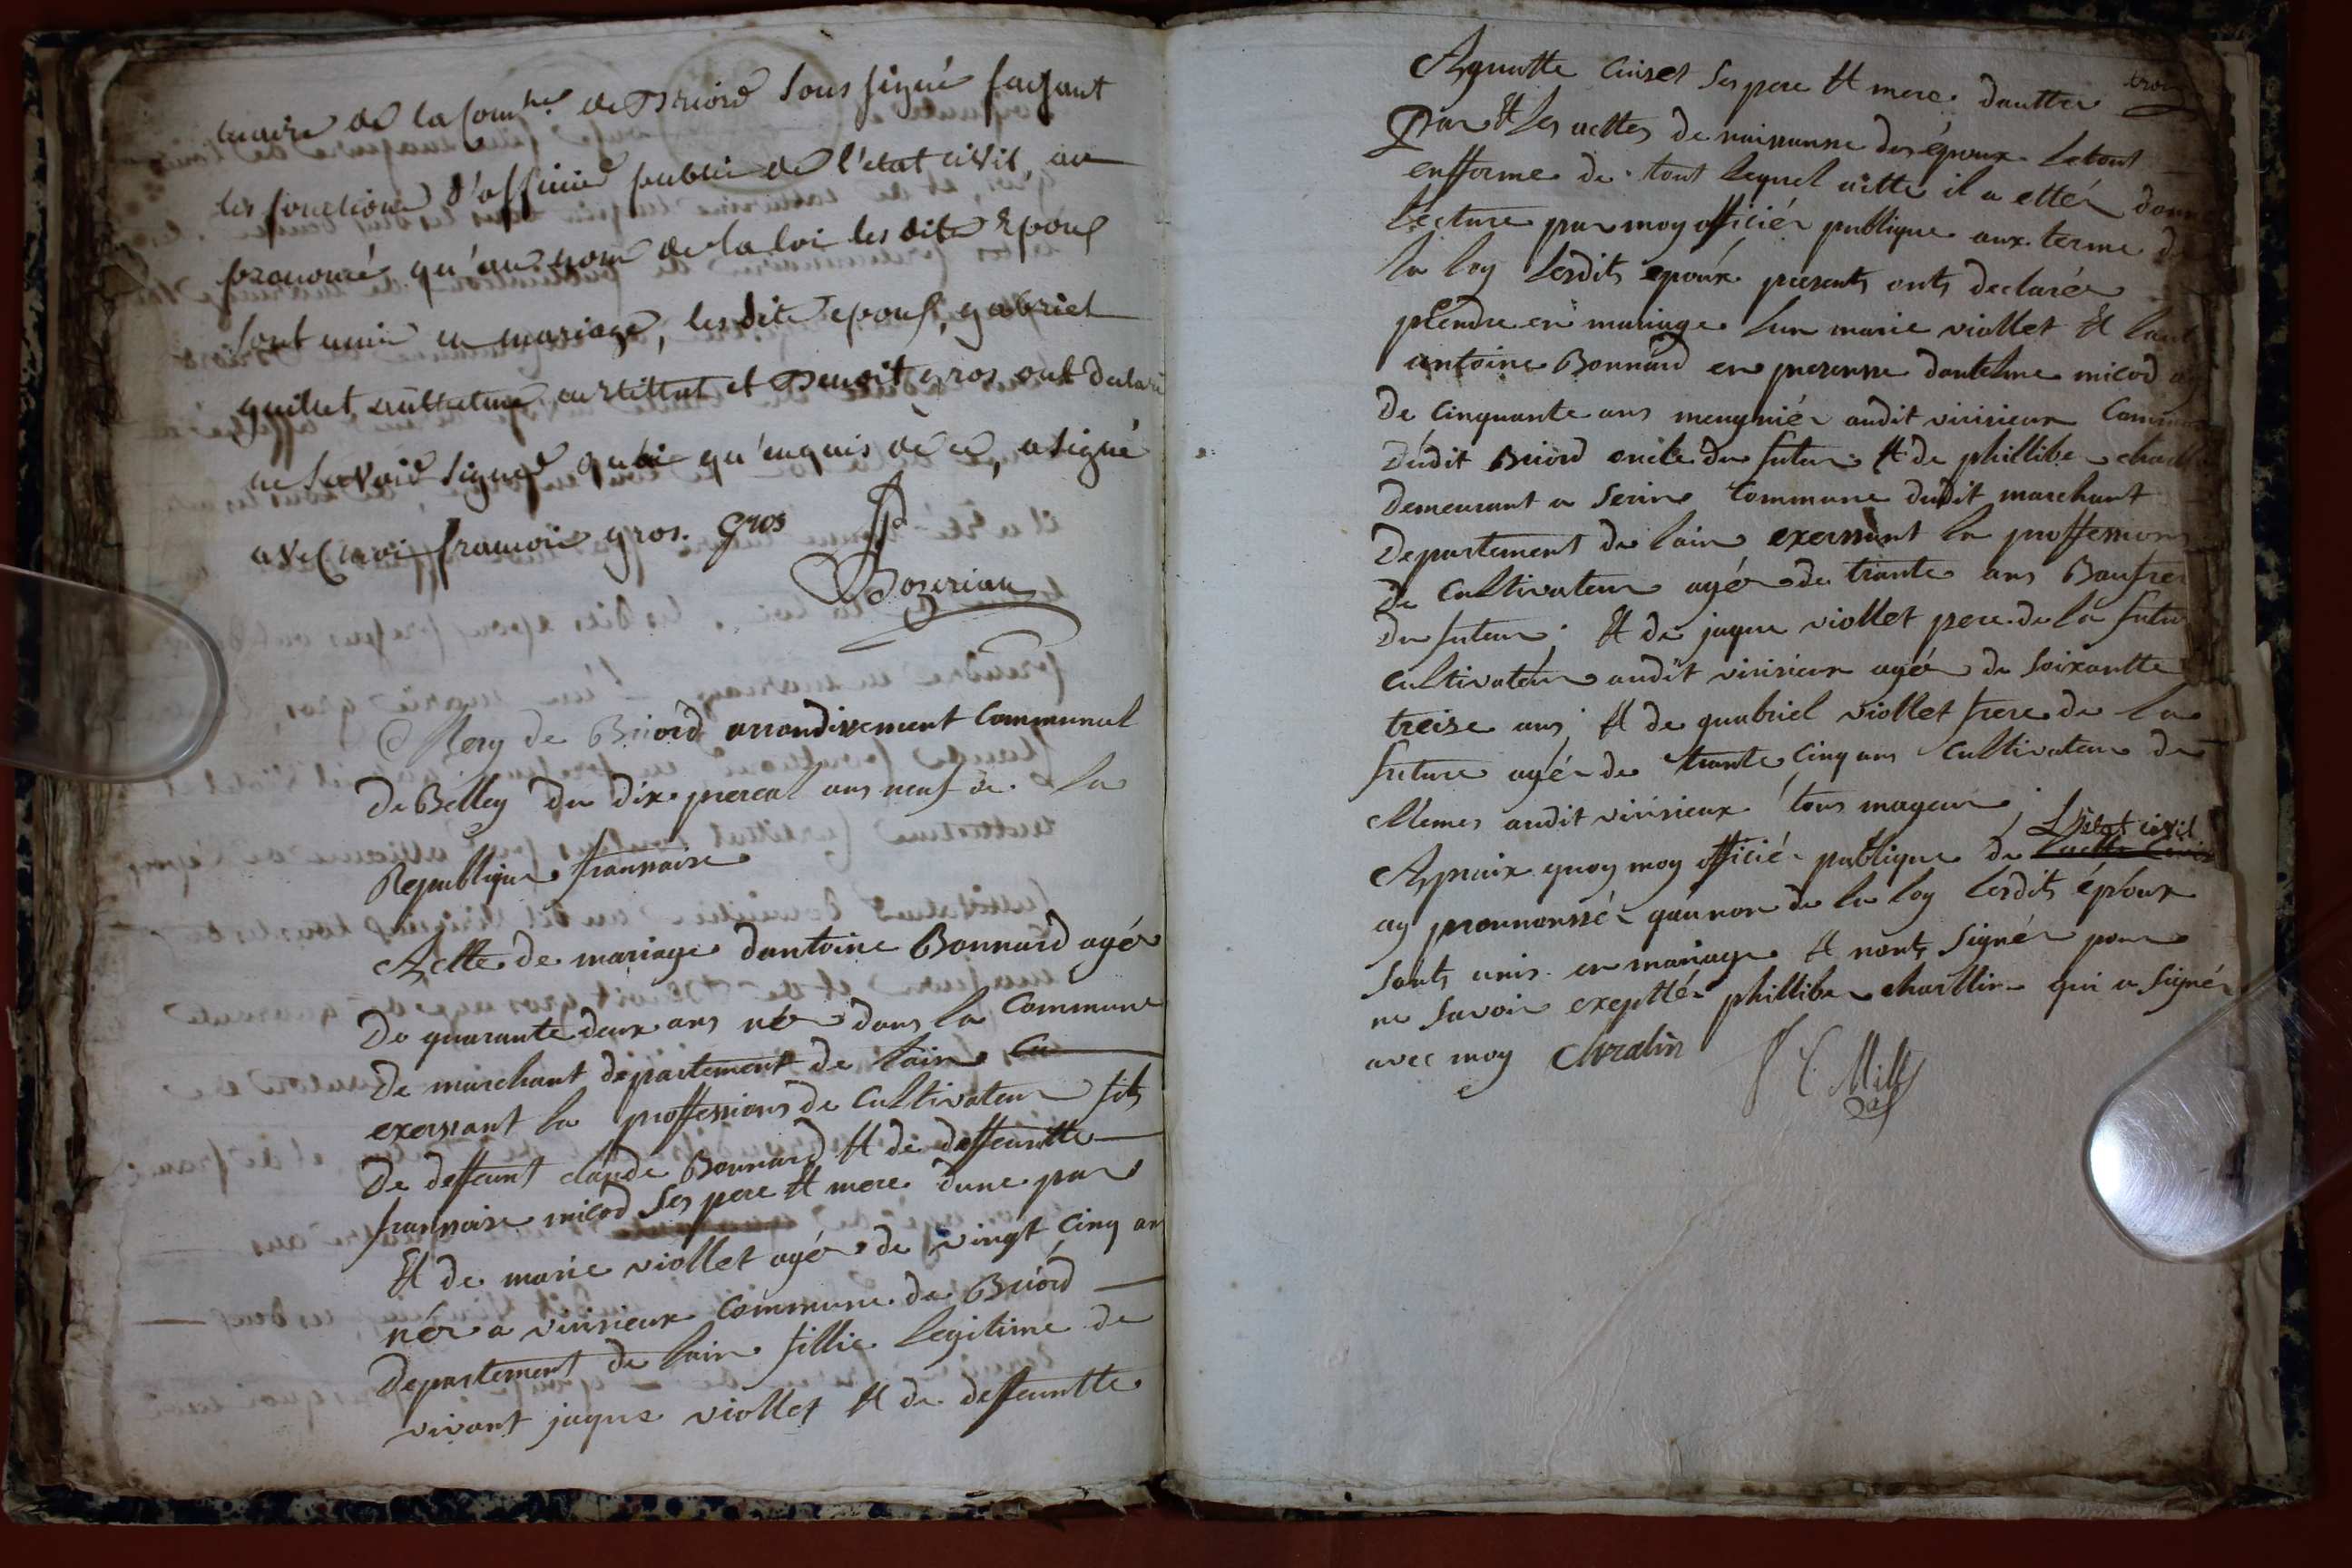 maire de la Com.ne de Briord sous signé faisant
les fonctions d'officier public de l'etat civil, ai
prononcé qu'au nom de la loi les dits Epoux
sont unis en mariage, les dits epoux, gabriel
guillet cultivateur et Benoit gros ont declaré
ne savoir signer qu'enquis de ce, a signé
avec moi françois gros. Gros
Bozerian
Mery de Briord arrondissement Communal
De Belley du dix prereal ans neuf de la
Republique françaisse
Actte de mariage dantoine Bonnard agé
De quarante deux ans né dans la Commune
De marchant département de lain
exerssant la proffessions de Cultivateur fils
De deffeunt claude Bonnard Et de deffeuntte
françoise micod ses pere Et mere dune par
Et de marie viollet agé de vingt cinq an
née a virisieux Commune de Briord
Departement de lain fillie legitime de
vivant jaques viollet Et de deffeuntte
trois
Aynotte Cuiset ses pere Et mere dauttre
Par Et les acttes de naissansse des époux letout
enfforme de tout lequel actte il a etté donn
Lecture par moy officiér publique aux terme de
la loy lesdits epoux presents onts declarér
prendre en mariage lun marie viollet Et laut
antoine Bonnard en presensse dantelme micod ag
De cinquante ans meugniér audit virisieux Commun
Dudit Briord oncle du futur Et de phillibe
Demeurant a Serin Commune dudit marchant
Departement de lain exerssant la proffessions
De Cultivateur agé de trante ans Baufrer
Du futeur; Et de jaque viollet pere de la futu
cultivateur audit virisieux agé de soixantte
treise ans; Et de guabriel viollet frere de la
futture agé de trante cinq ans Cultivateur de
Memes audit virisieux tous mageur;
L'Etat civil
Apraix quoy moy officiér publique de
ay pronnonssé quaunon de la loy lesdits époux
sonts unis en mariage Et nonts signér pour
ne savoir exeptté phillibe charllin qui a signér
avec moy Chralin